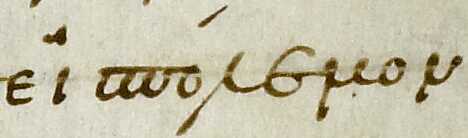 εἰ πολεμον